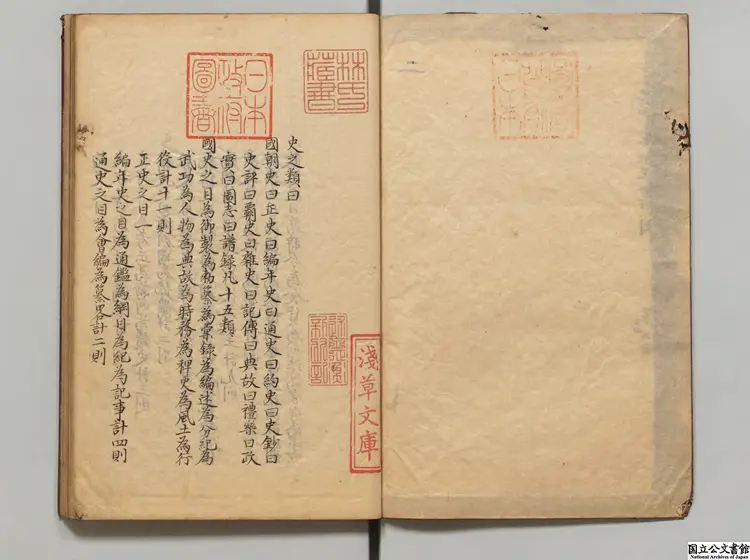 史之類曰
國朝史曰正史曰編年史曰通史曰約史曰史鈔曰
史評曰覇史曰雜史曰記傳曰典故曰禮樂曰政
實曰圖志曰譜錄凡十五類
國史之目為御製為勅纂為彙錄為編述為分紀為
武功為人物為典故為時務為稗史為風土為行
役計十一則
正史之目一
編年史之目為通鑑為綱目為紀為記事計四則
通史之目為會編為纂畧計二則
林氏藏書
日本政府圖書
淺草文庫
国立公文書館
National Archives of Japan